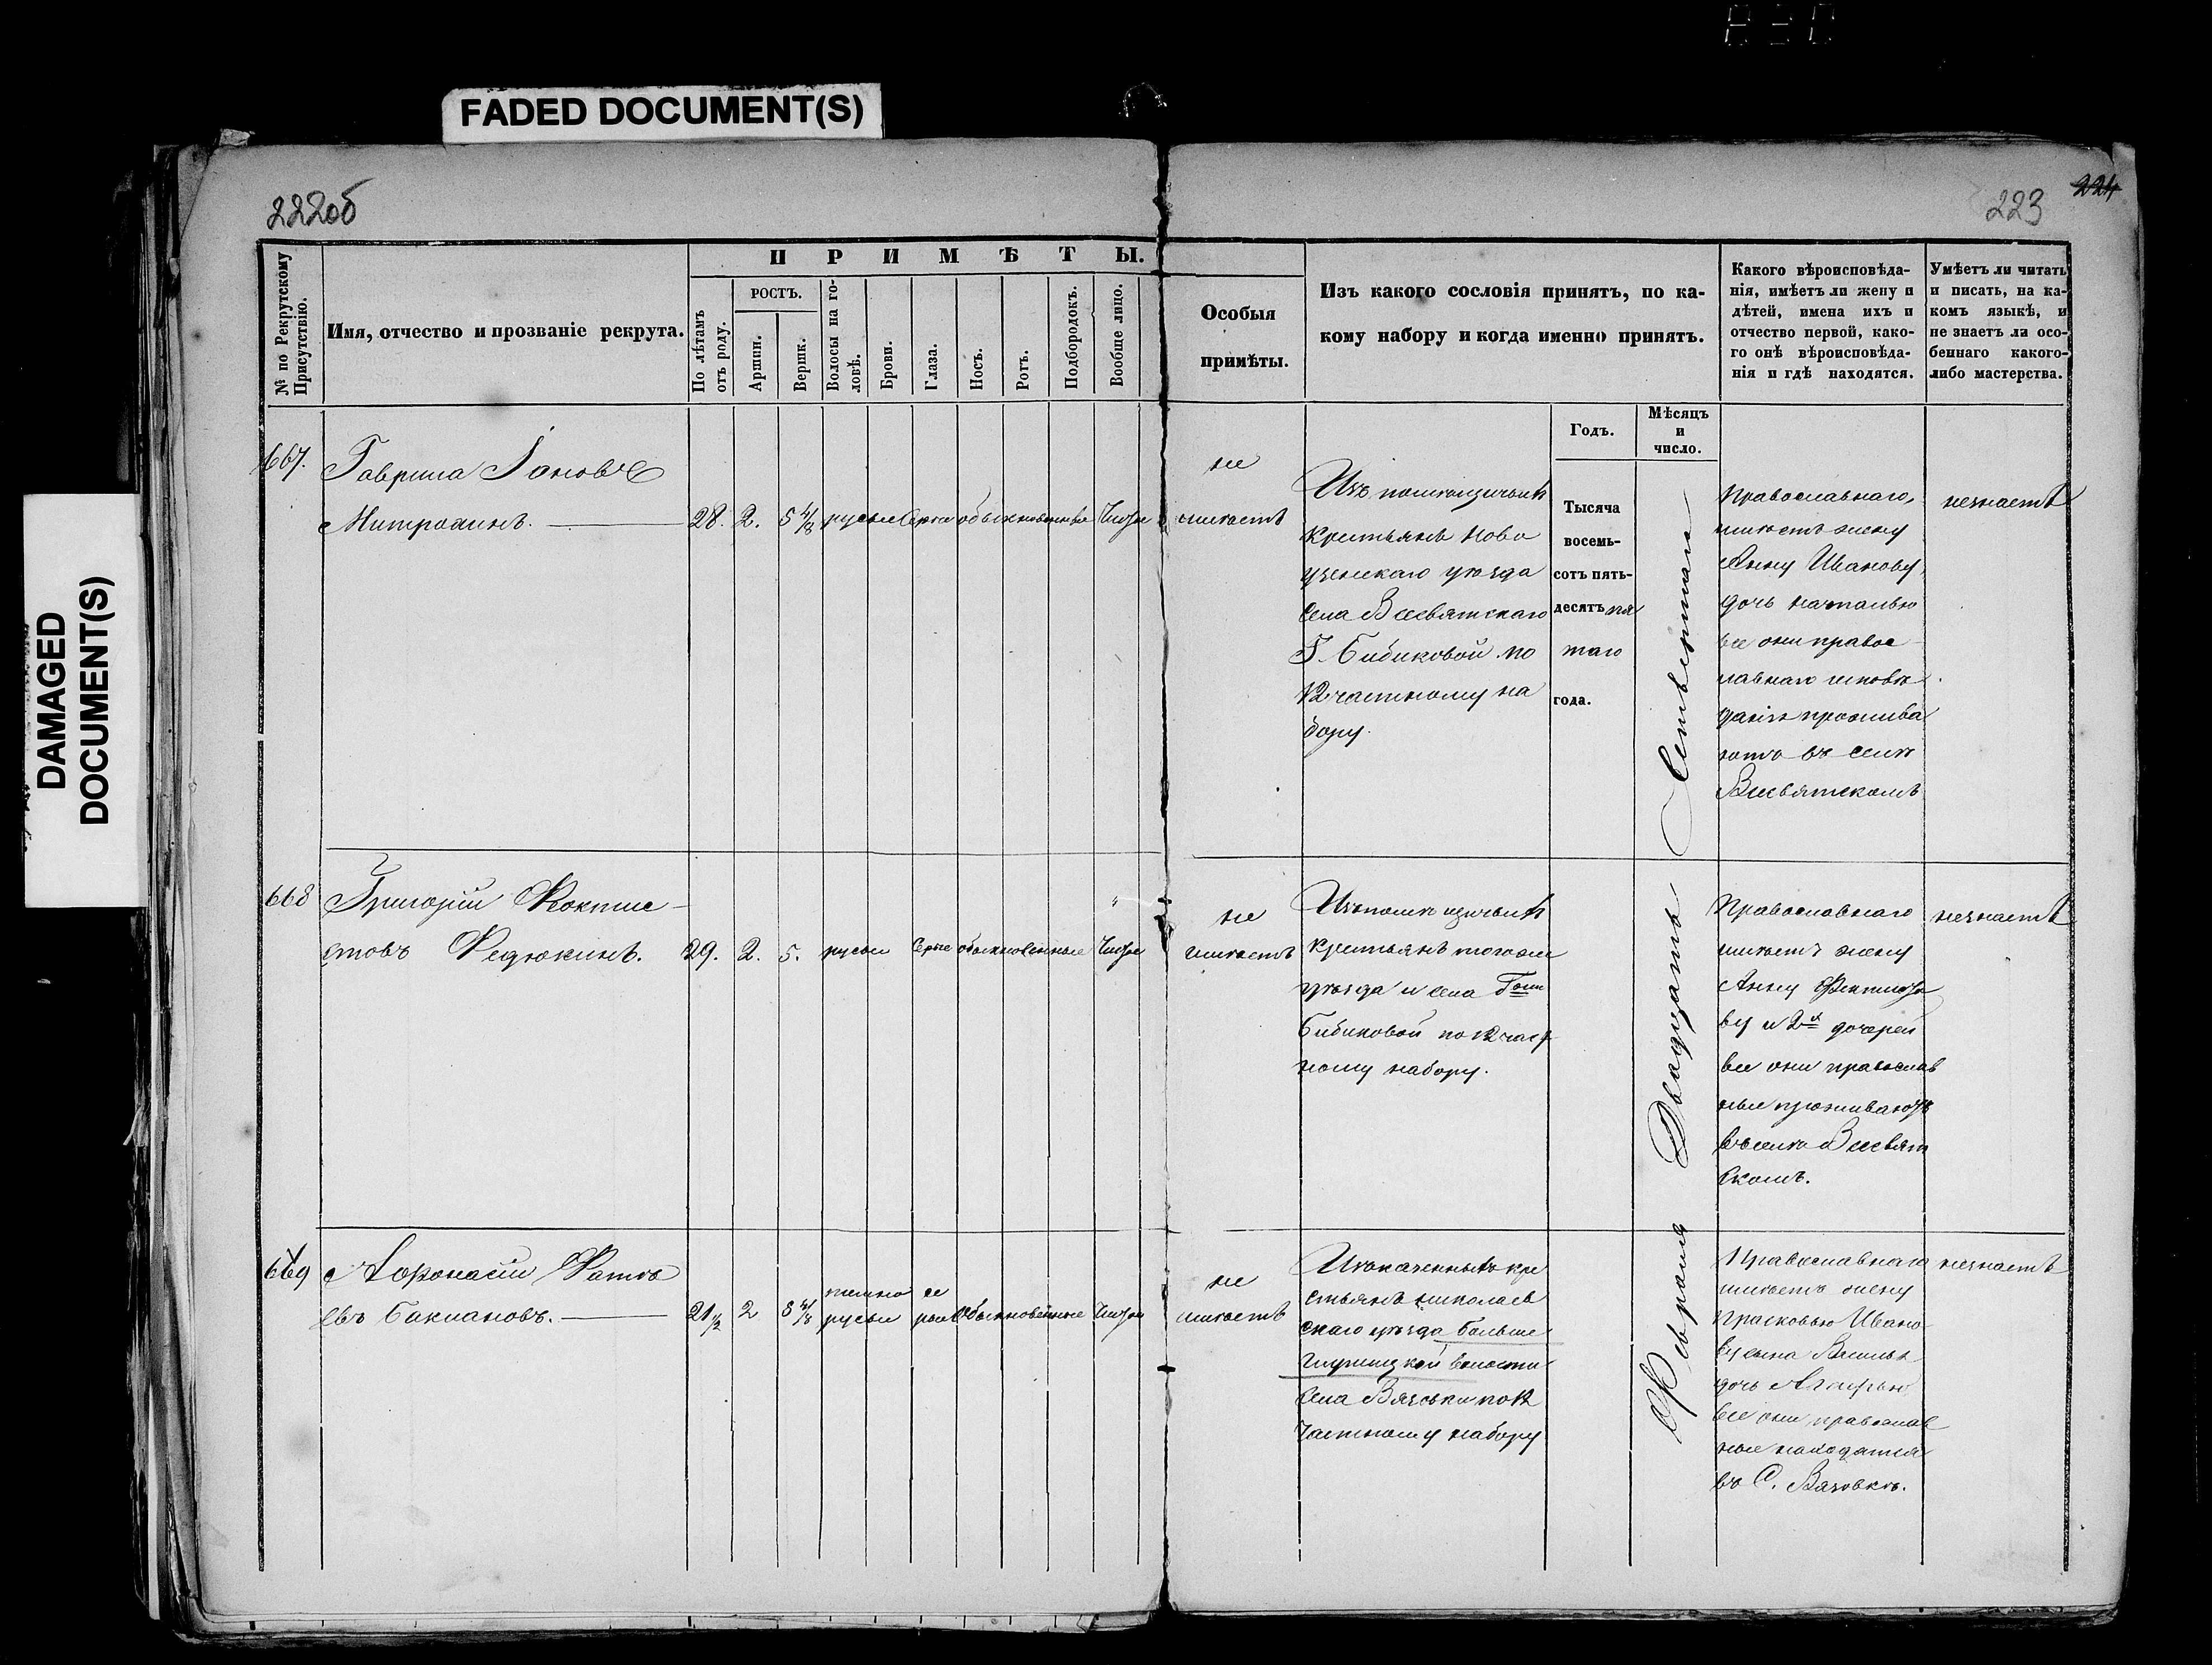 FADED DOCUMENT(S)
DAMAGED
DOCUMENT(S)
222об
223
224
№ по Рекрутскому
Присутствію.
Имя, отчество и прозваніе рекрута.
ПРИМѢТЫ.
По лѣтамъ
отъ роду.
РОСТЪ.
Аршин.
Вершк.
Волосы на го-
ловѣ.
Брови.
Глаза.
Носъ.
Ротъ.
Подбородокъ.
Вообще лицо.
Особыя
примѣты.
Изъ какого сословія принятъ, по ка-
кому набору и когда именно принятъ.
Какого вѣроисповѣда-
нія, имѣетъ ли жену и
дѣтей, имена ихъ и
отчество первой, како-
го онѣ вѣроисповѣда-
нія и гдѣ находятся.
Умѣетъ ли читать
и писать, на ка-
комъ языкѣ, и
не знаетъ ли осо-
беннаго какого-
либо мастерства.
Годъ.
Мѣсяцъ
и
число.
667.
Гаврила
Митрохинъ.
28. 2. 5 4/8 русые Серые обыкновенные Чистое
не
имѣетъ
Изъ помѣщичьихъ
крестьянъ Ново
узенскаго уѣзда
Села Всесвятскаго
Г. Бибиковой по
12 частному на
бору.
Тысяча
восемь-
сотъ пять-
десятъ пя
таго
года.
Февраля Двадцать Четвертаго
Православнаго,
имѣетъ жену
Анну Иванову,
дочь Наталью
все они правос
лавнаго исповѣ
данія прожива
ютъ въ селѣ
Всесвятскомъ
незнаетъ
668
Григорій Фоктис-
стовъ Федюкинъ.
29. 2. 5. русые Серые обыкновенные Чистое
не
имѣетъ
Изъ помѣщичьихъ
Крестьянъ тогоже
уѣзда и села Гжи
Бибиковой по 12 част
ному набору.
Православнаго
имѣетъ жену
Анну
ву и 2хъ дочерей
все они православ
ные проживаютъ
въ селѣ Всесвят
скомъ.
незнаетъ
669
Афонасій Фатѣ
евъ Баклановъ.
21 1/2 2 8 4/8
темно
русые
се
рые Обыкновенные Чистое
не
имѣетъ
Изъ казенныхъ кре
стьянъ Николаев
скаго уѣзда больше
глушицкой волости
Села Вязовки по 12
Частному набору
Православнаго
имѣетъ жену
Прасковью Ивано
ву сына Василья
дочь
все они православ
ные находятся
въ С. Вязовкѣ.
незнаетъ